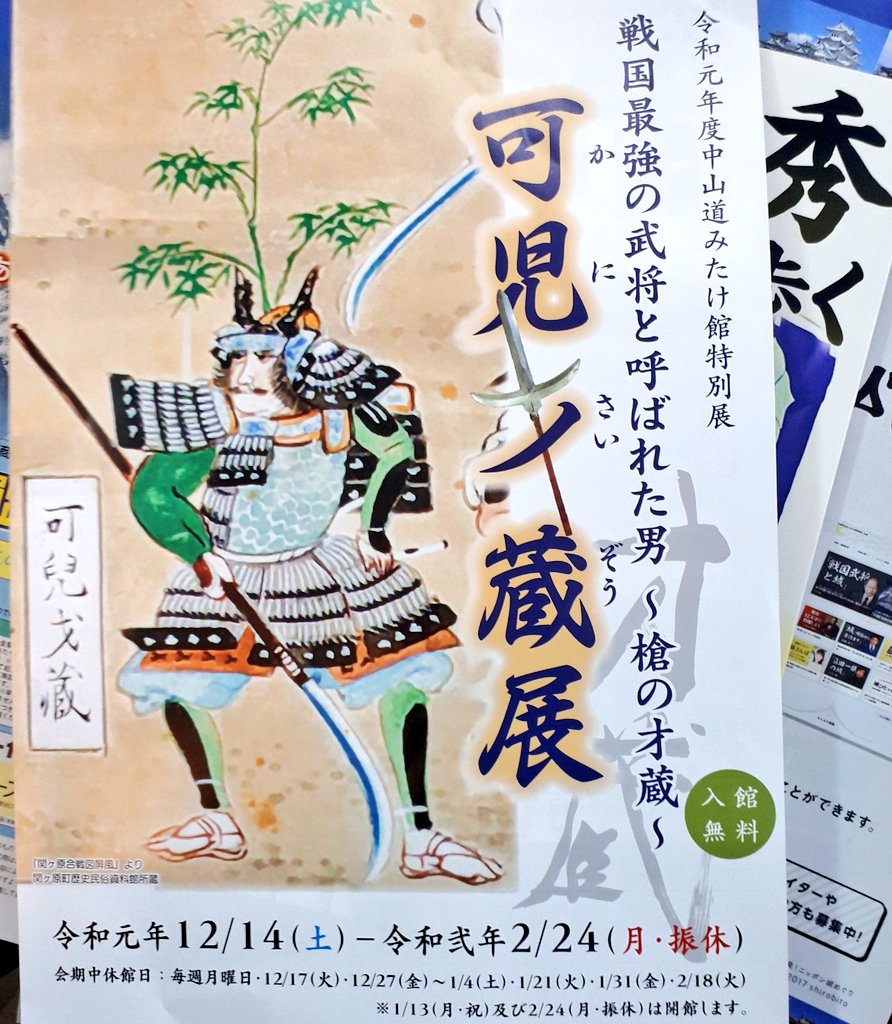 令和元年度中山道みたけ館特別展
戦国最強の武将と呼ばれた男 〜槍の才蔵〜
可児才蔵展
かにさいぞう
才蔵
可兒才藏
入館
無料
『関ヶ原合戦図屏風』より
関ヶ原町歴史民俗資料館所蔵
令和元年12/14(土)−令和弐年2/24(月・振休)
会期中休館日：毎週月曜日・12/17(火)・12/27(金)〜1/4(土)・1/21(火)・1/31(金)・2/18(火)
※1/13(月・祝)及び2/24(月・振休)は開館します。
秀
歩く
「戦国武将
と城」
とができます。
イターや
方も募集中!
2017 shirobito